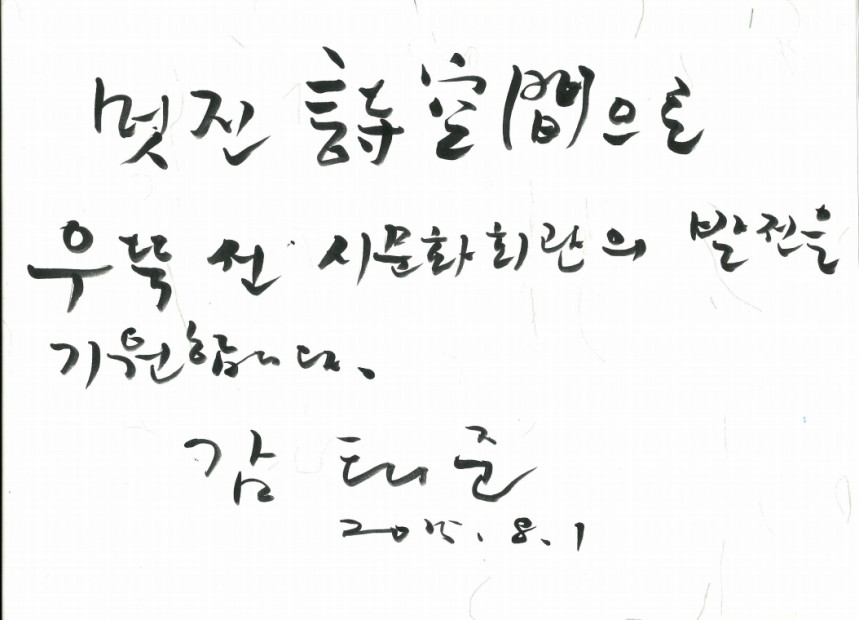 멋진 詩空間으로
우뚝 선 시문화회관의 발전을
기원합니다.
감태준
2015. 8. 1